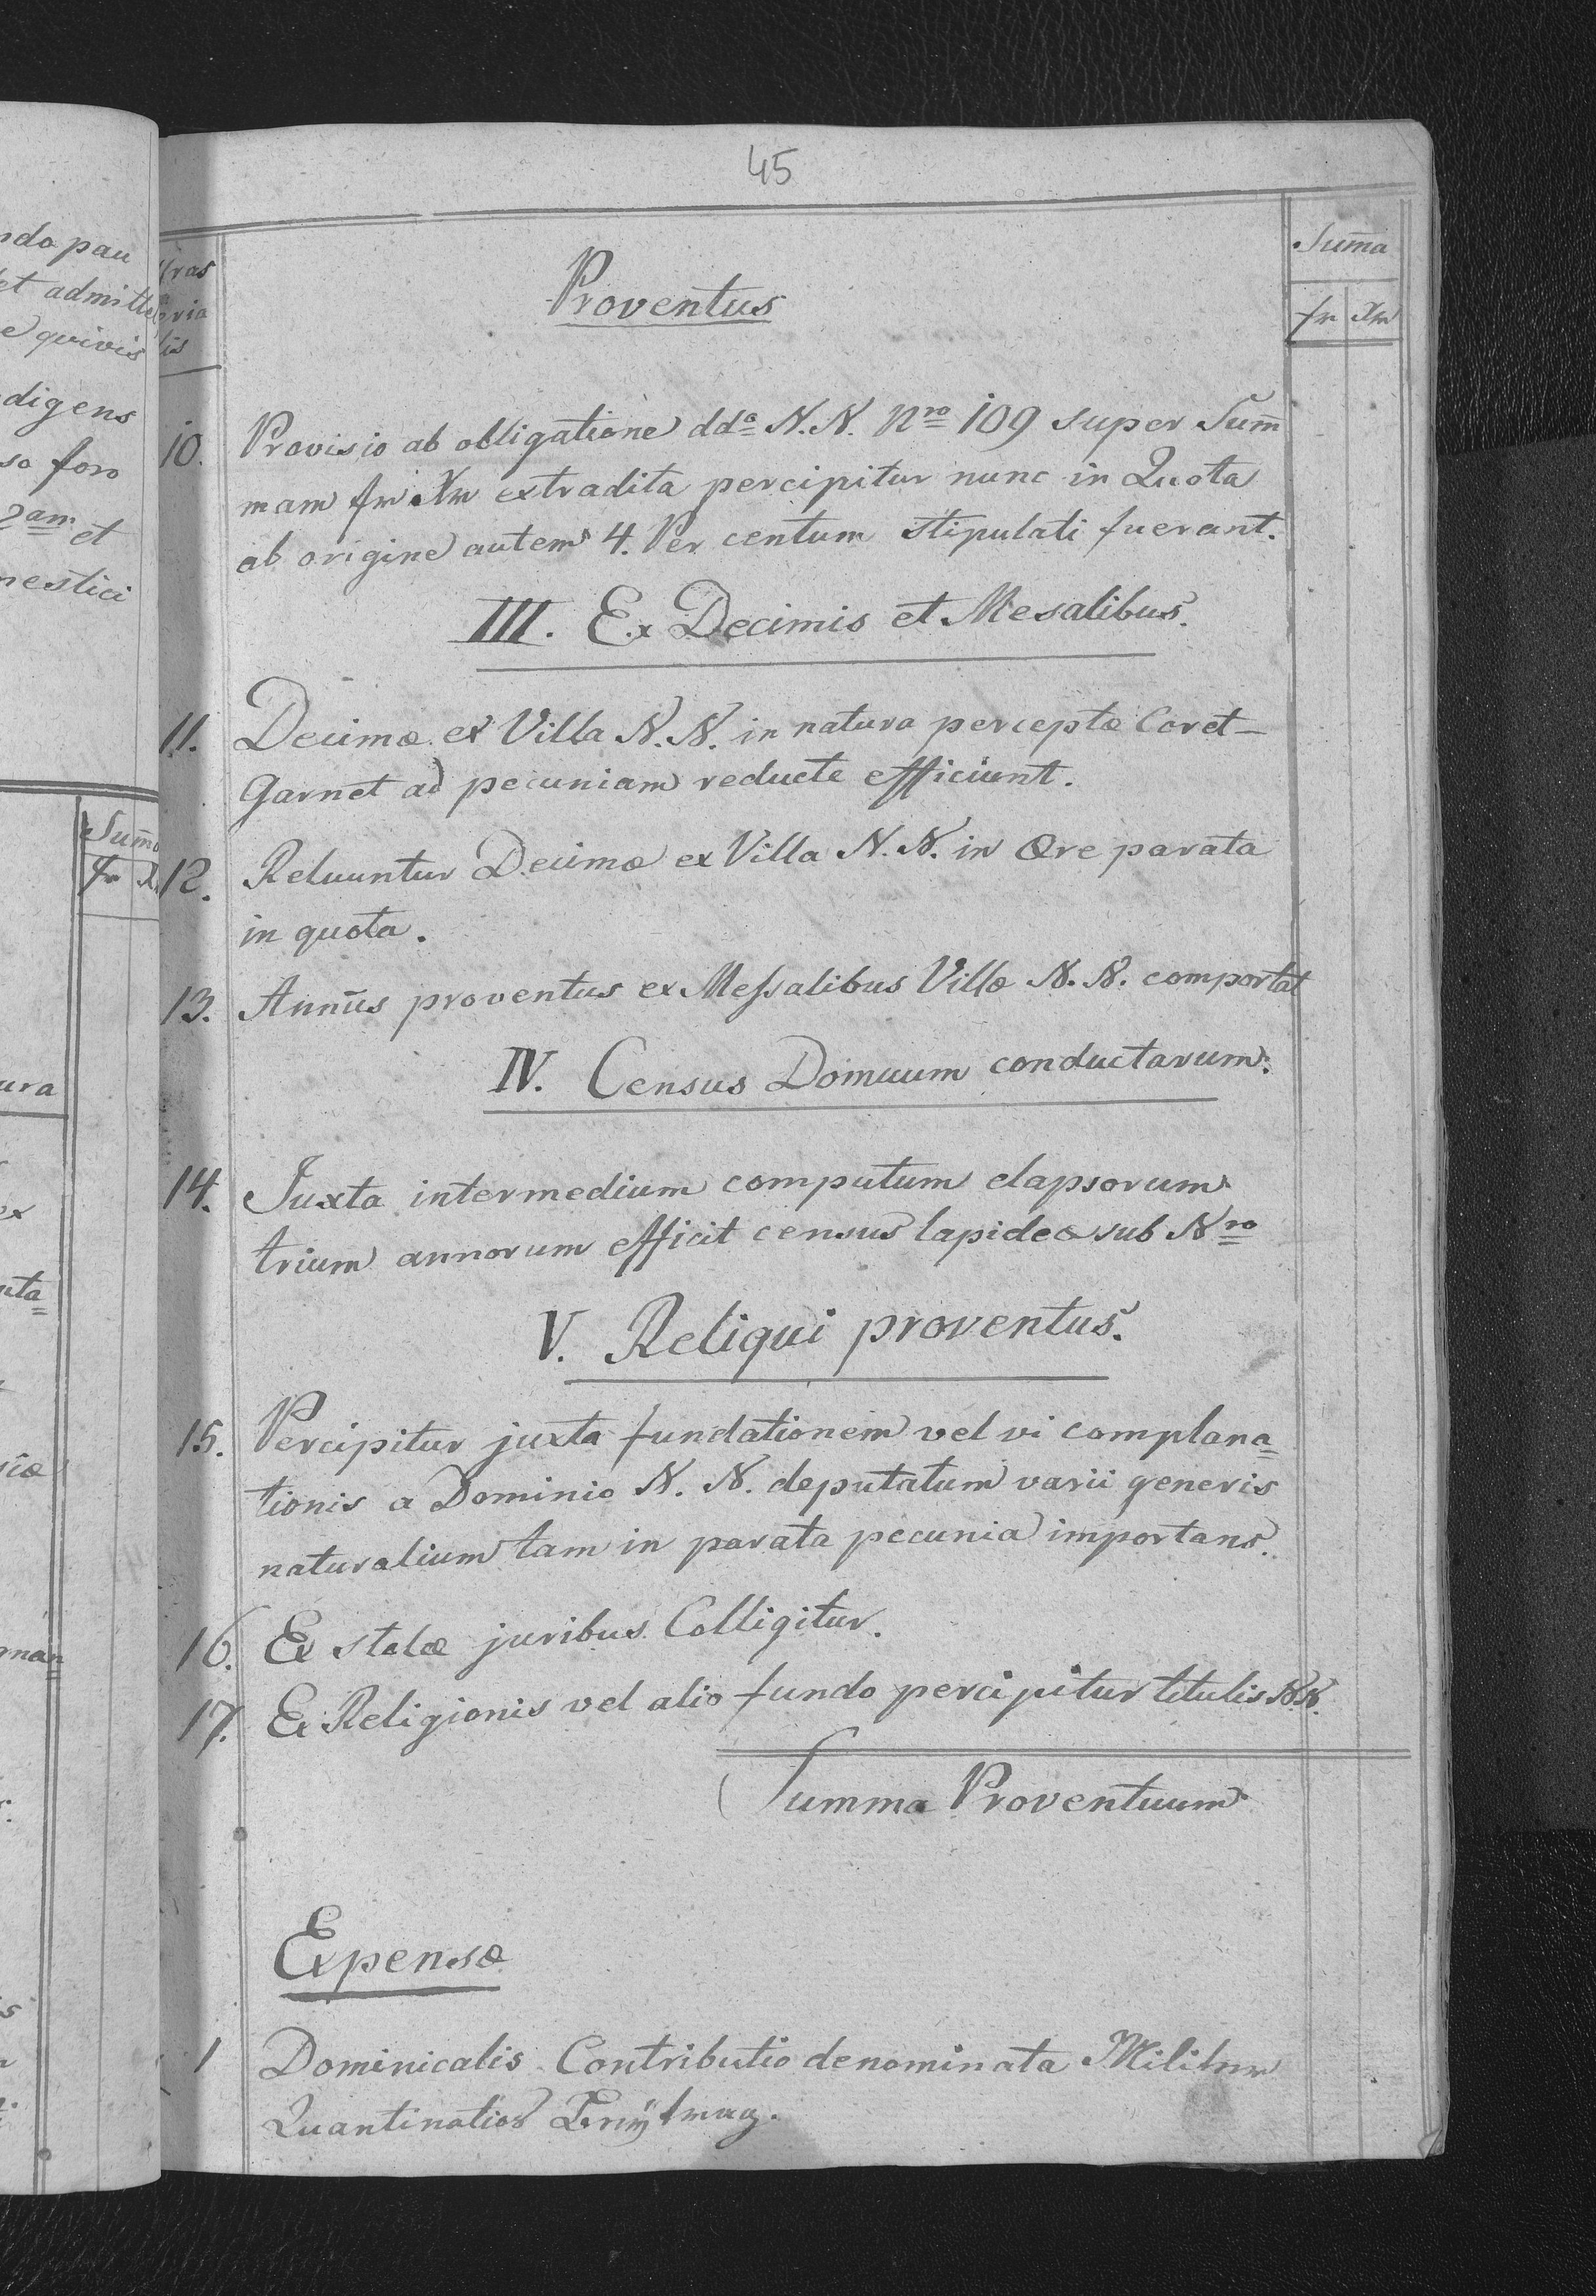 45
Proventus
Summa
fr Xr
10. Provisio ab obligatione dd° N.N. Nro 109 super Sum̄
mam fr Xr extradita percipitur nunc in Quota
ab origine autem 4. Per centum stipulati fuerant.
III. Ex Decimis et Mesalibus.
11. Decimæ ex Villa N.N. in natura perceptæ Coret-
Garnet ad pecuniam reducte efficiunt.
12. Reluuntur Decimæ ex Villa N.N. in Ære parata
in quota.
13. Annūs proventus ex Messalibus Villæ N.N. comportat
IV. Census Domuum conductarum.
14. Juxta intermedium computum elapsorum
trium annorum efficit census lapideæ sub Nro
V. Reliqui proventus.
15. Percipitur juxta fundationem vel vi complana=
tionis a Dominio N.N. deputatum varii generis
naturalium tam in parata pecunia importans.
16. Ex stolæ juribus Colligitur.
17. Ex Religionis vel alio fundo percipitur titulis N.N.
Summa Proventuum
Expensæ
1 Dominicalis Contributio denominata
ndo pau
et admitte
e quivis
digens
so foro
2am et
mestici
Sum̄a
fr
ura